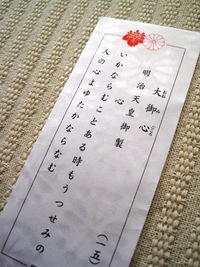 大御心
(一五)
明治天皇御製
心
いかならむことある時もうつせみの
人の心よゆたかならなむ